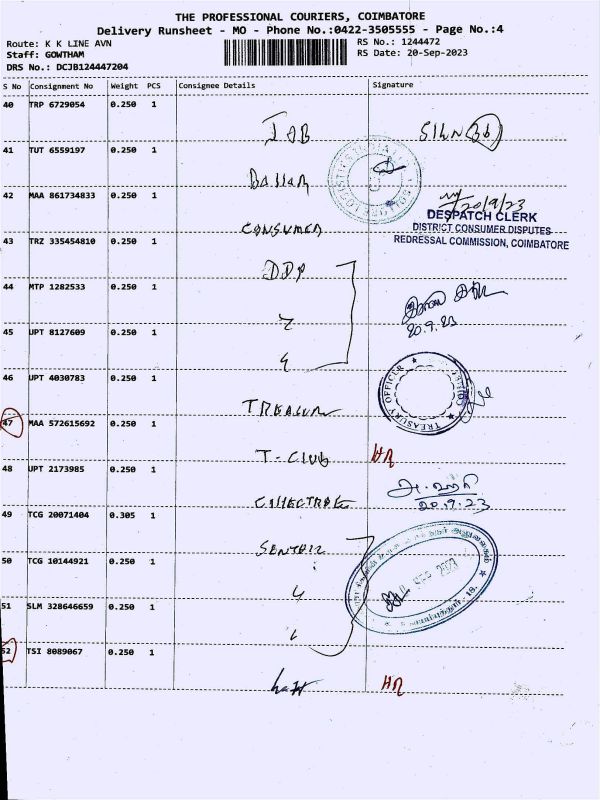 THE PROFESSIONAL COURIERS, COIMBATORE
Delivery Runsheet - MO - Phone No.:0422-3505555 - Page No.:4
Route: K K LINE AVN RS No.: 1244472
Staff: GOWTHAM RS Date: 20-Sep-2023
DRS No.: DCJB124447204
S No Consignment No Weight PCS Consignee Details Signature
40 TRP 6729054 0.250 1
IOB
41 TUT 6559197 0.250 1
42 MAA 861734833 0.250 1
20/9/23
DESPATCH CLERK
CONSUMER DISTRICT CONSUMER DISPUTES
REDRESSAL COMMISSION, COIMBATORE
43 TRZ 335454810 0.250 1
DDP
44 MTP 1282533 0.250 1
20.9.23
45 UPT 8127609 0.250 1
46 UPT 4030783 0.250 1
TREASURY OFFICER
47 MAA 572615692 0.250 1
T-CLUB HR
48 UPT 2173985 0.250 1
20.9.23
49 TCG 20071404 0.305 1
50 TCG 10144921 0.250 1
SEP 2023
51 SLM 328646659 0.250 1
52 TSI 8089067 0.250 1
HR